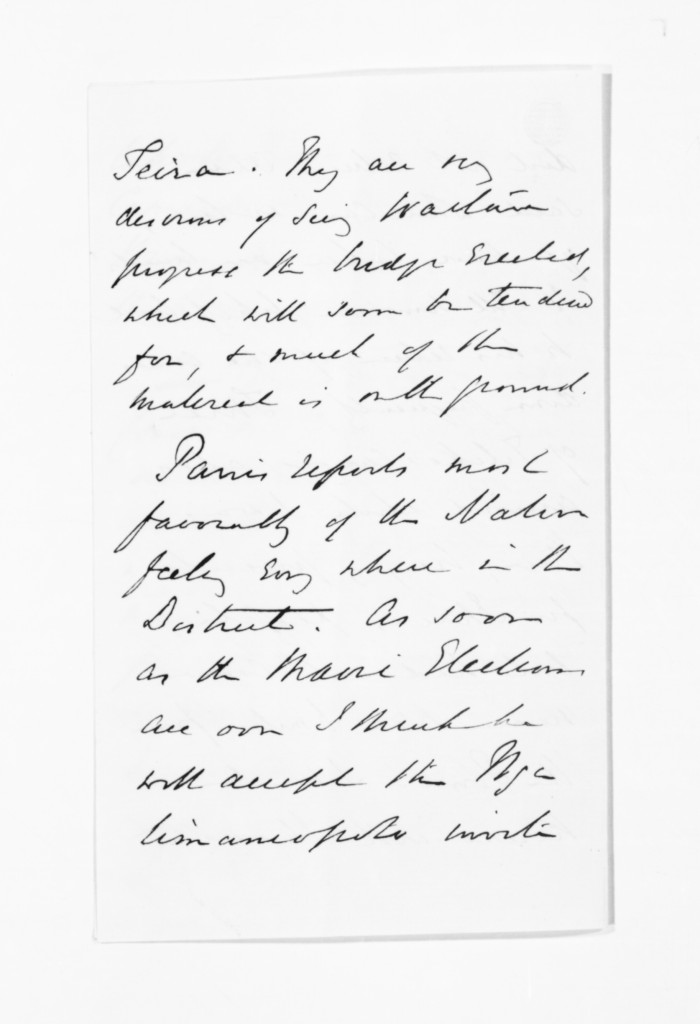 Teira. They are very
desirous of seeing Waitara
progress the bridge erected,
which will soon be tendered
for, & much of the
material is on the ground.
Parris reports most
favorably of the Native
feeling every where in the
District. As soon
as the Maori Elections
are over I think he
will accept the Nga
timaneapoto invita